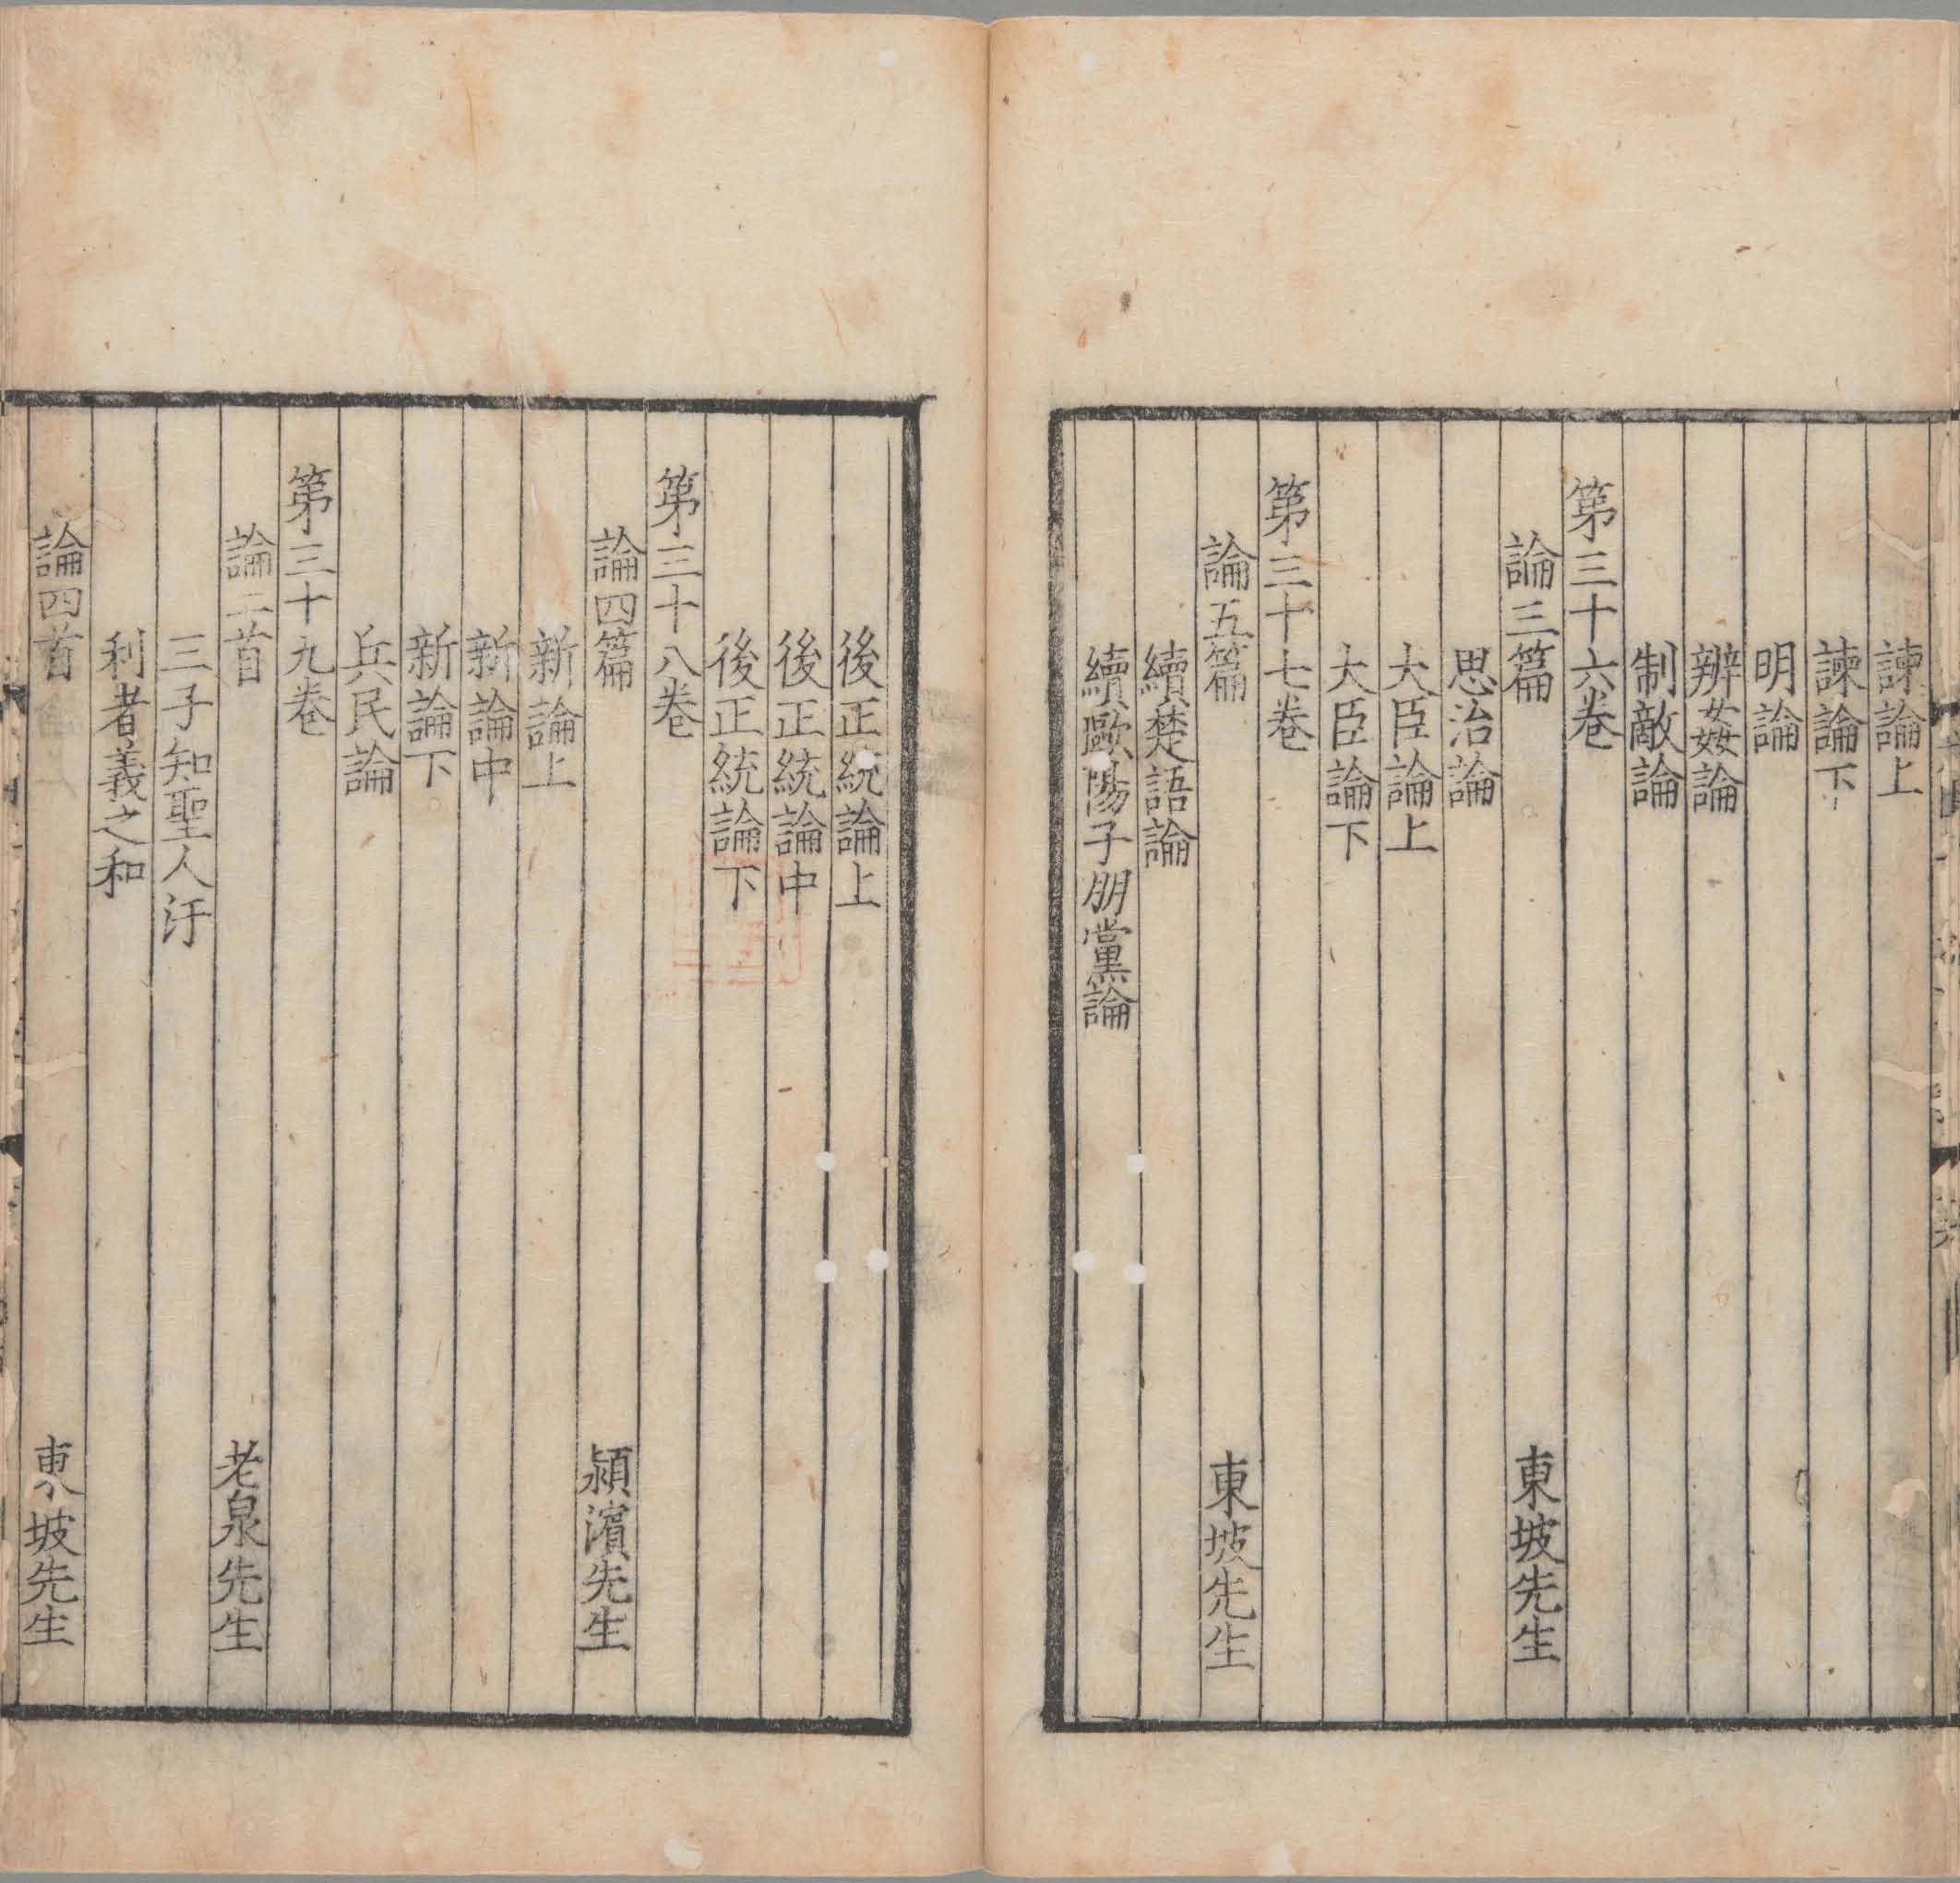 諫論上
諫論下
明論
辨姦論
制敵論
第三十六卷
論三篇　東坡先生
思治論
大臣論上
大臣論下
第三十七卷
論五篇　東坡先生
續楚語論
續歐陽子朋黨論
後正統論上
後正統論中
後正統論下
第三十八卷
論四篇　潁濱先生
新論上
新論中
新論下
兵民論
第三十九卷
論二首　老泉先生
三子知聖人汙
利者義之和
論四首　東坡先生